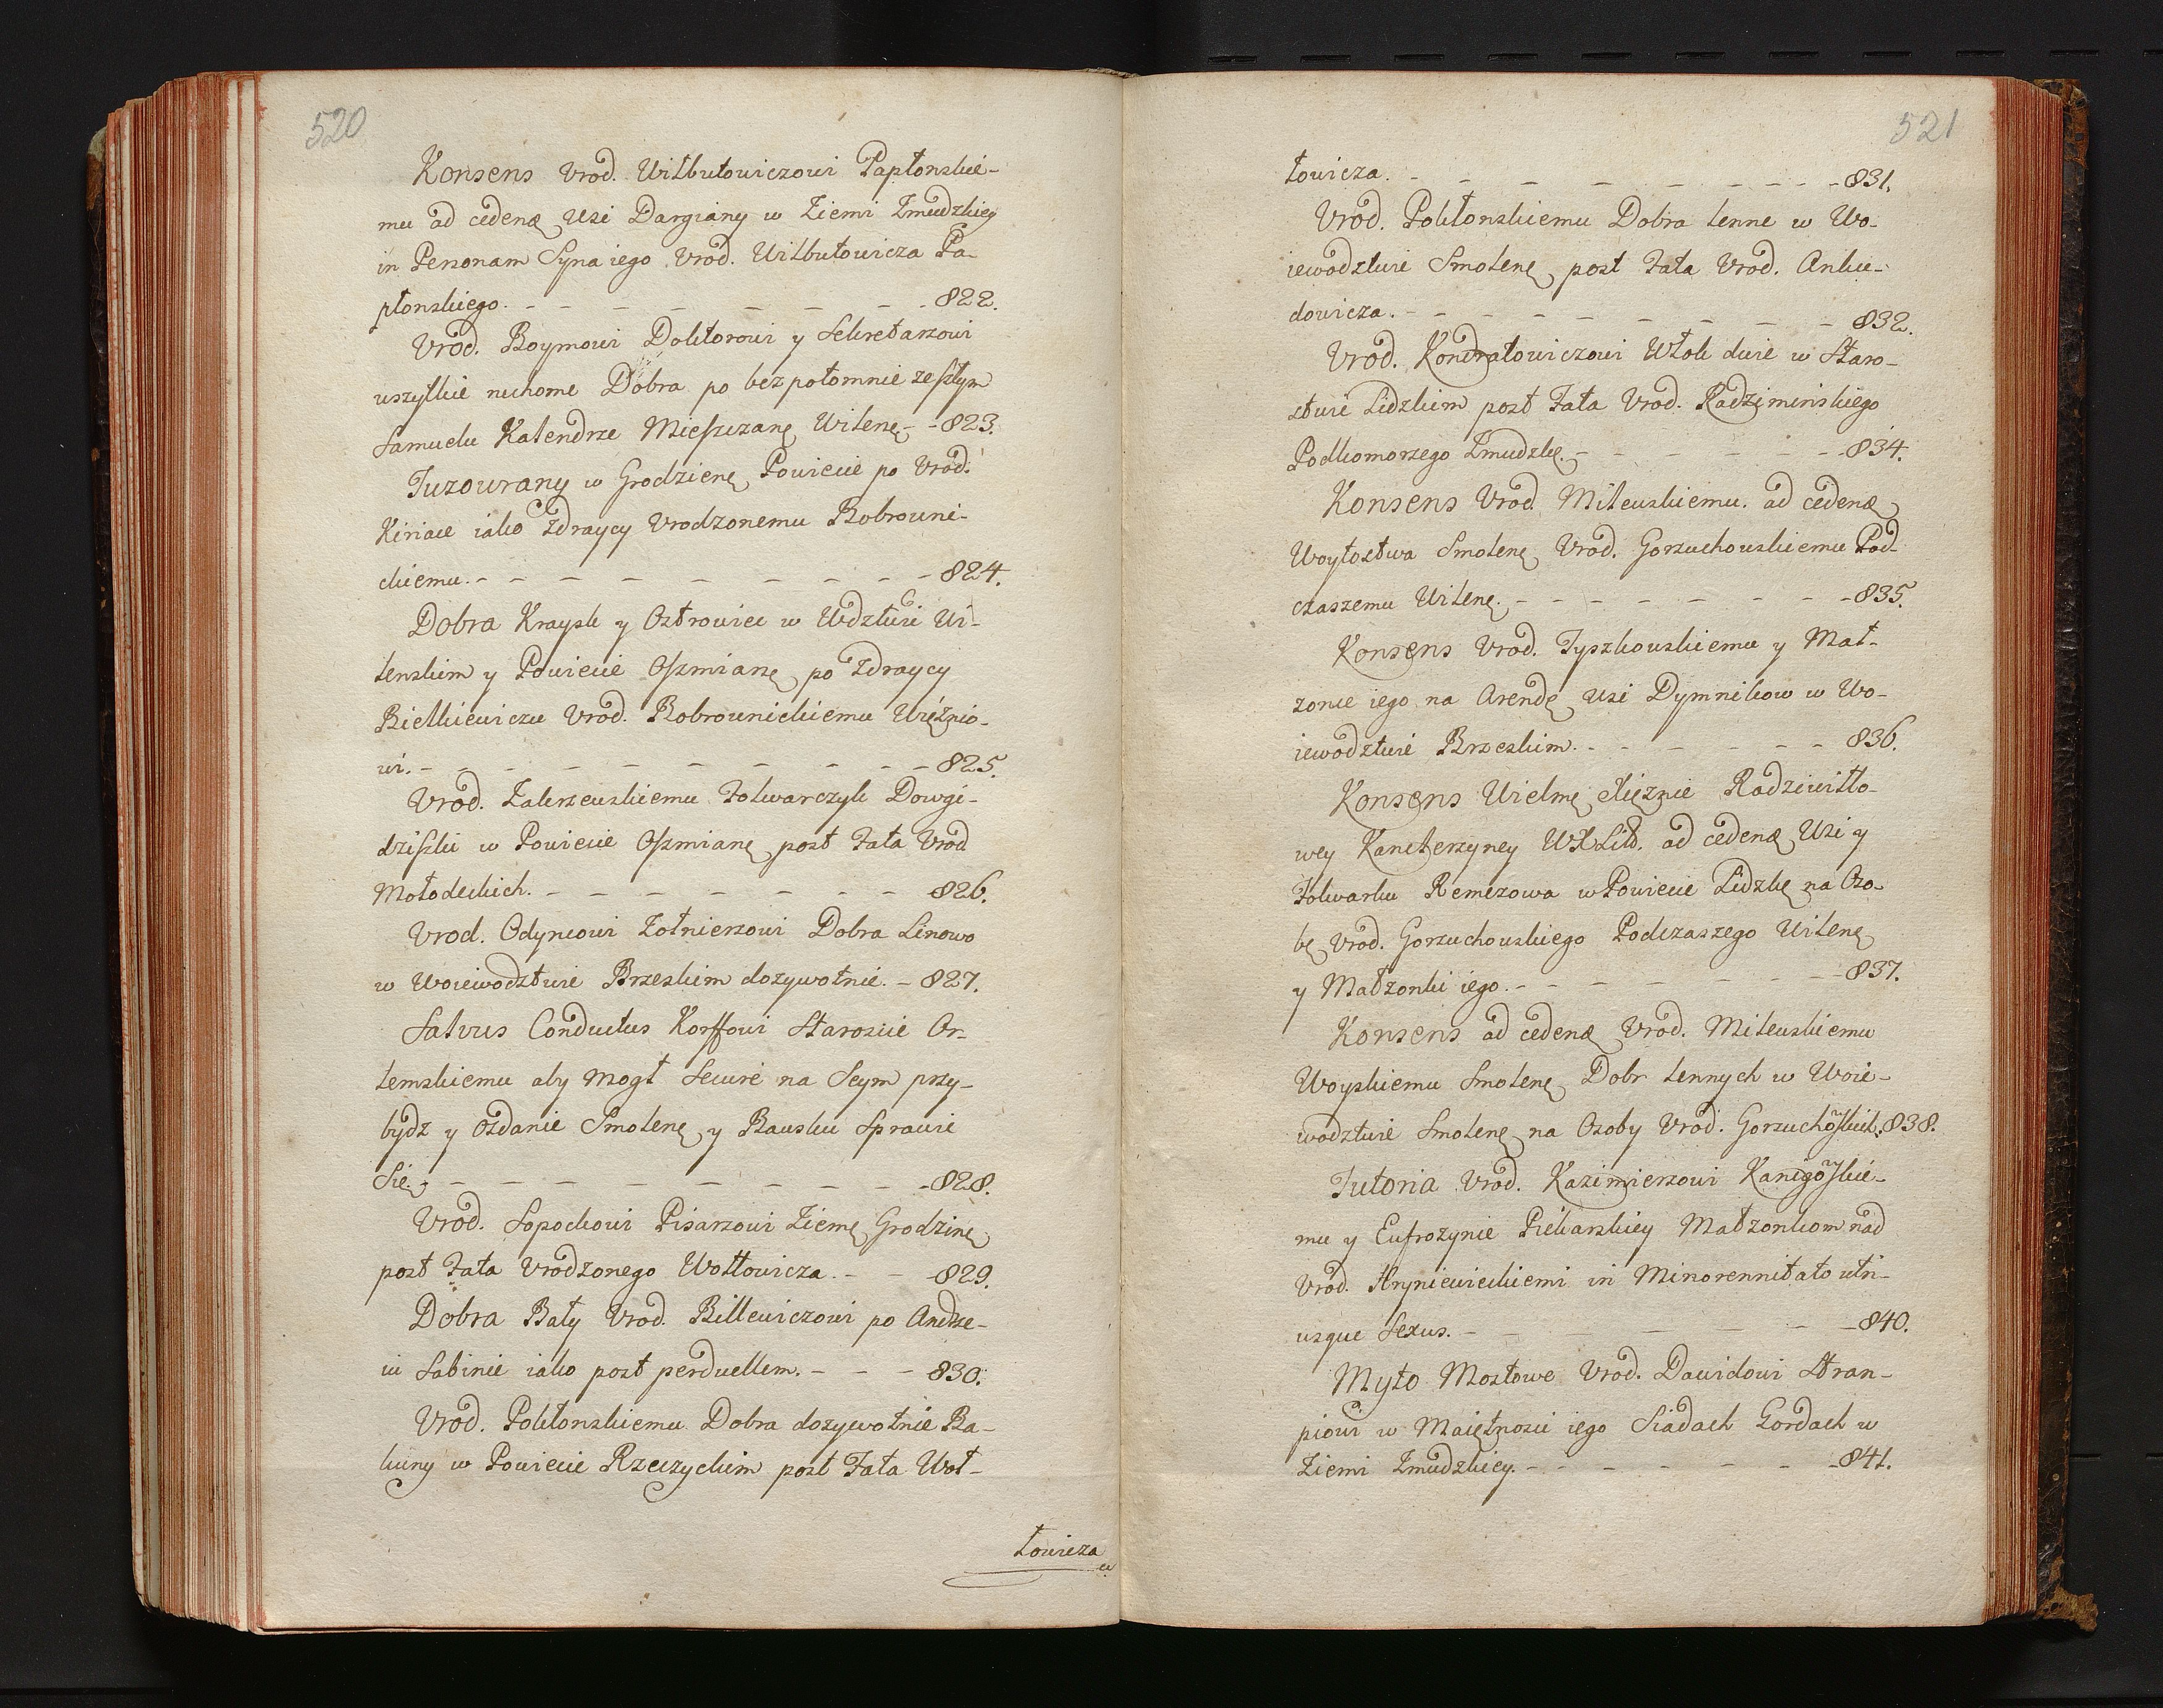 520
Konsens Vrod. Wilbutowiczowi Papłonskie-
mu ad cedendę Wsi Dargiany w Ziemi Zmudzkiey
in Personam Syna iego Vrod. Wilbutowicza Pa-
płonskiego. - - - - - - - - 822.
Vrod. Boymowi Doktorowi y Sekretarzowi
wszytkie ruchome Dobra po bezpotomnie zeszłym
Samuelu Kalendrze Mieszczanę Wilenę - - 823.
Juzowrany w Grodzienę Powiecie po Vrod.
Kiriace iako Zdraycy Vrodzonemu Bobrowni-
ckiemu. - - - - - - - - 824.
Dobra Kraysk y Ostrowiec w Wdztwie Wi-
lenskim y Powiecie Oszmianę po Zdraycy
Bielkiewiczu Vrod. Bobrownickiemu Więznio-
wi. - - - - - - - - - 825.
Vrod. Zakrzewskiemu Folwarczyk Dowgi-
dziszki w Powiecie Oszmianę post Fata Vrod
Mołodeckich. - - - - - - - 826.
Vrod. Odyncowi Zołnierzowi Dobra Linowo
w Woiewodztwie Brzeskim dozywotnie. - 827.
Salvus Conductus Korffowi Staroscie Or-
lemskiemu aby mogł Secure na Seym przy-
bydz y Oddanie Smolenę y Bausku Sprawic
Się. - - - - - - - - - 828.
Vrod. Sopockowi Pisarzowi Ziemę Grodzinę
post Fata Vrodzonego Wołłowicza. - - 829.
Dobra Bały Vrod. Billewiczowi po Andrze-
iu Sabinie iako post perduellem. - - - 830.
Vrod. Pokłonskiemu Dobra dozywotnie Ba-
kuny w Powiecie Rzeczyckim post Fata Woł-
łowicza
521
łowicza. - - - - - - - - - 831.
Vrod. Pokłonskiemu Dobra lenne w Wo-
iewodztwie Smolenę post Fata Vrod. Anku-
dowicza. - - - - - - - - - 832.
Vrod. Kondratowiczowi Włok dwie w Staro-
stwie Lidzkim post Fata Vrod. Radzyminskiego
Podkomorzego Zmudzkę. - - - - - - 834.
Konsens Vrod. Milewskiemu. ad cedendę
Woytostwa Smolenę Vrod. Gorzuchowskiemu Pod-
czaszemu Wilenę. - - - - - - - 835.
Konsens Vrod. Tyszkowskiemu y Mał-
zonce iego na Arendę Wsi Dymnikow w Wo-
iewodztwie Brzeskim. - - - - - 836.
Konsens Wielmę Xięznie Radziwiłło-
wey Kanclerzyney WXLitt. ad cedendę Wsi y
Folwarku Remezowa w Powiecie Lidzkę na Oso-
bę Vrod. Gorzuchowskiego Podczaszego Wilenę
y Małzonki iego. - - - - - - - 837.
Konsens ad cedendę Vrod. Milewskiemu
Woyskiemu Smolenę Dobr lennych w Woie-
wodztwie Smolenę na Osoby Vrod. Gorzuchoskich. 838.
Tutoria Vrod. Kazimierzowi Kanigoskie-
mu y Eufrozynie Piekarskiey Małzonkom nad
Vrod. Hryniewieckiemi in Minorennitato utri-
usque Sexus. - - - - - - - 840.
Myto Mostowe Vrod. Dawidowi Stran-
piowi w Maiętnosci iego Siadach Gordach w
Ziemi Zmudzkiey. - - - - - - - 841.